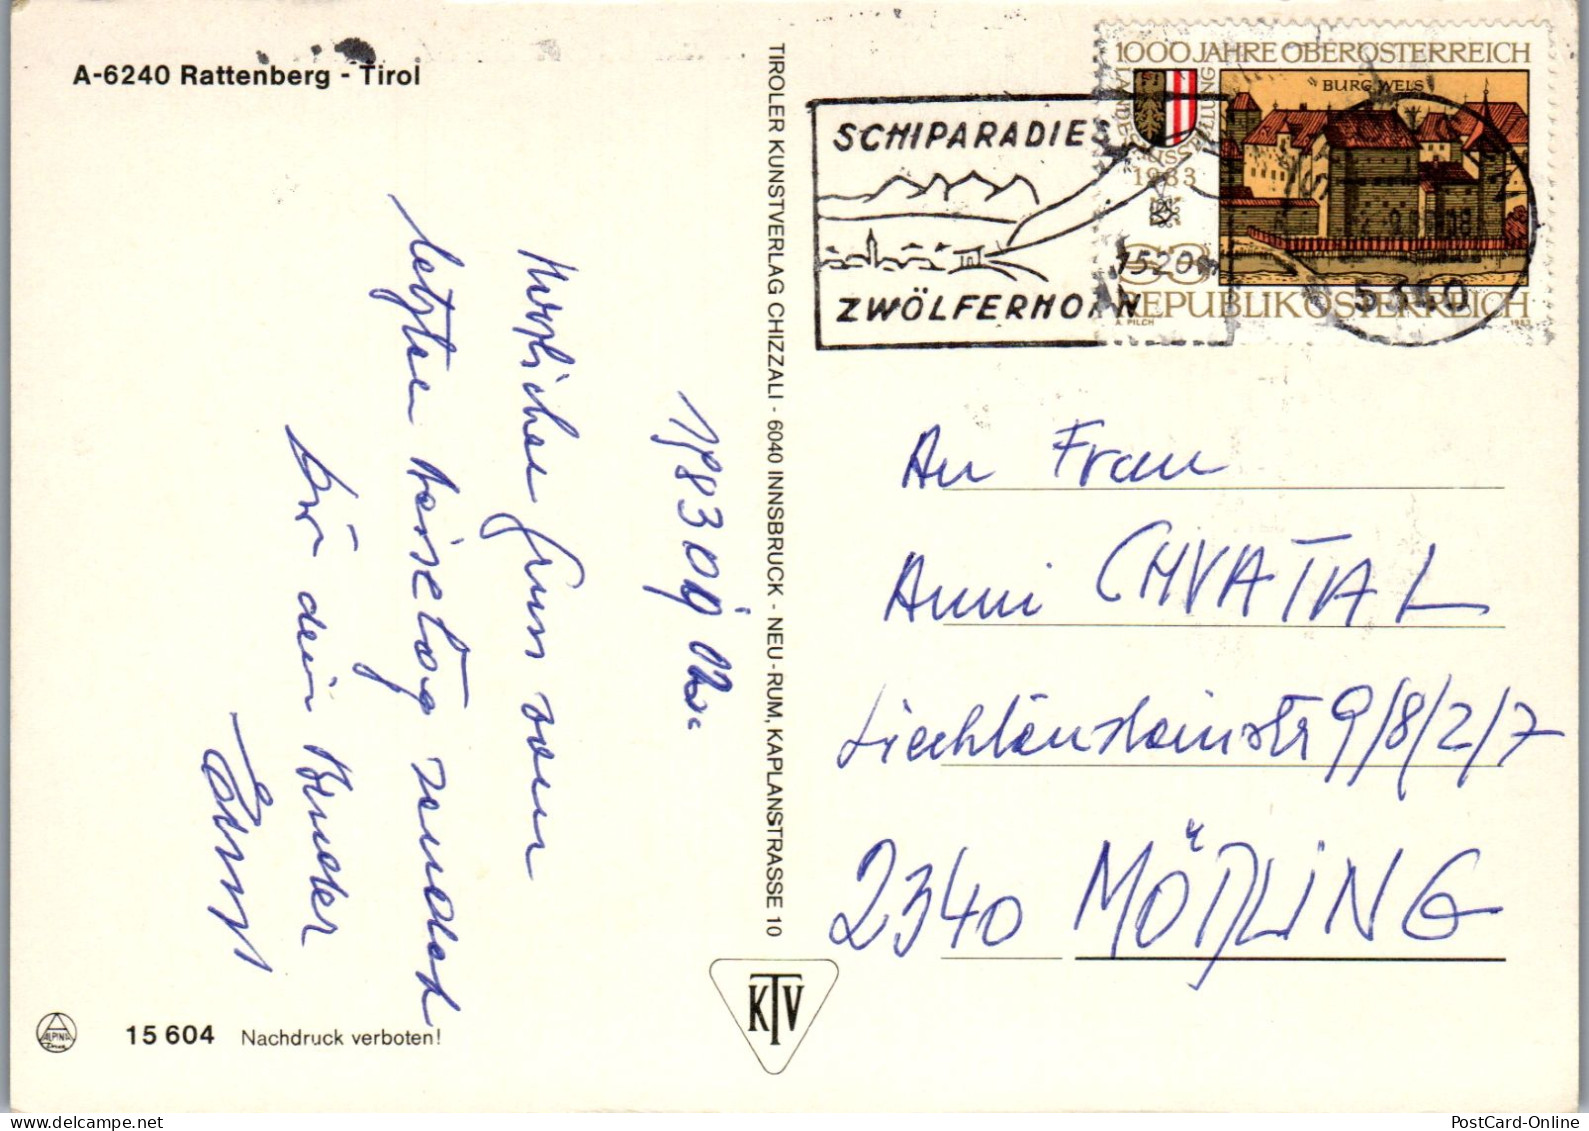 A-6240 Rattenberg - Tirol
1983 09 02.
Herzlichen Gruss vom
letzten Reisetag sendet
Dir dein Bruder
Ernst
15 604 Nachdruck verboten!
ALPINA
TIROLER KUNSTVERLAG CHIZZALI - 6040 INNSBRUCK - NEU-RUM, KAPLANSTRASSE 10
KTV
SCHIPARADIES
1520
ZWÖLFERHORN
1000 JAHRE OBERÖSTERREICH
BURG WELS
LANDESAUSSTELLUNG
1983
S3
REPUBLIK ÖSTERREICH
A. PILCH 1983
5340
An Frau
Anni CHVATAL
Liechtensteinstr 9/8/2/7
2340 MÖDLING
PostCard-Online